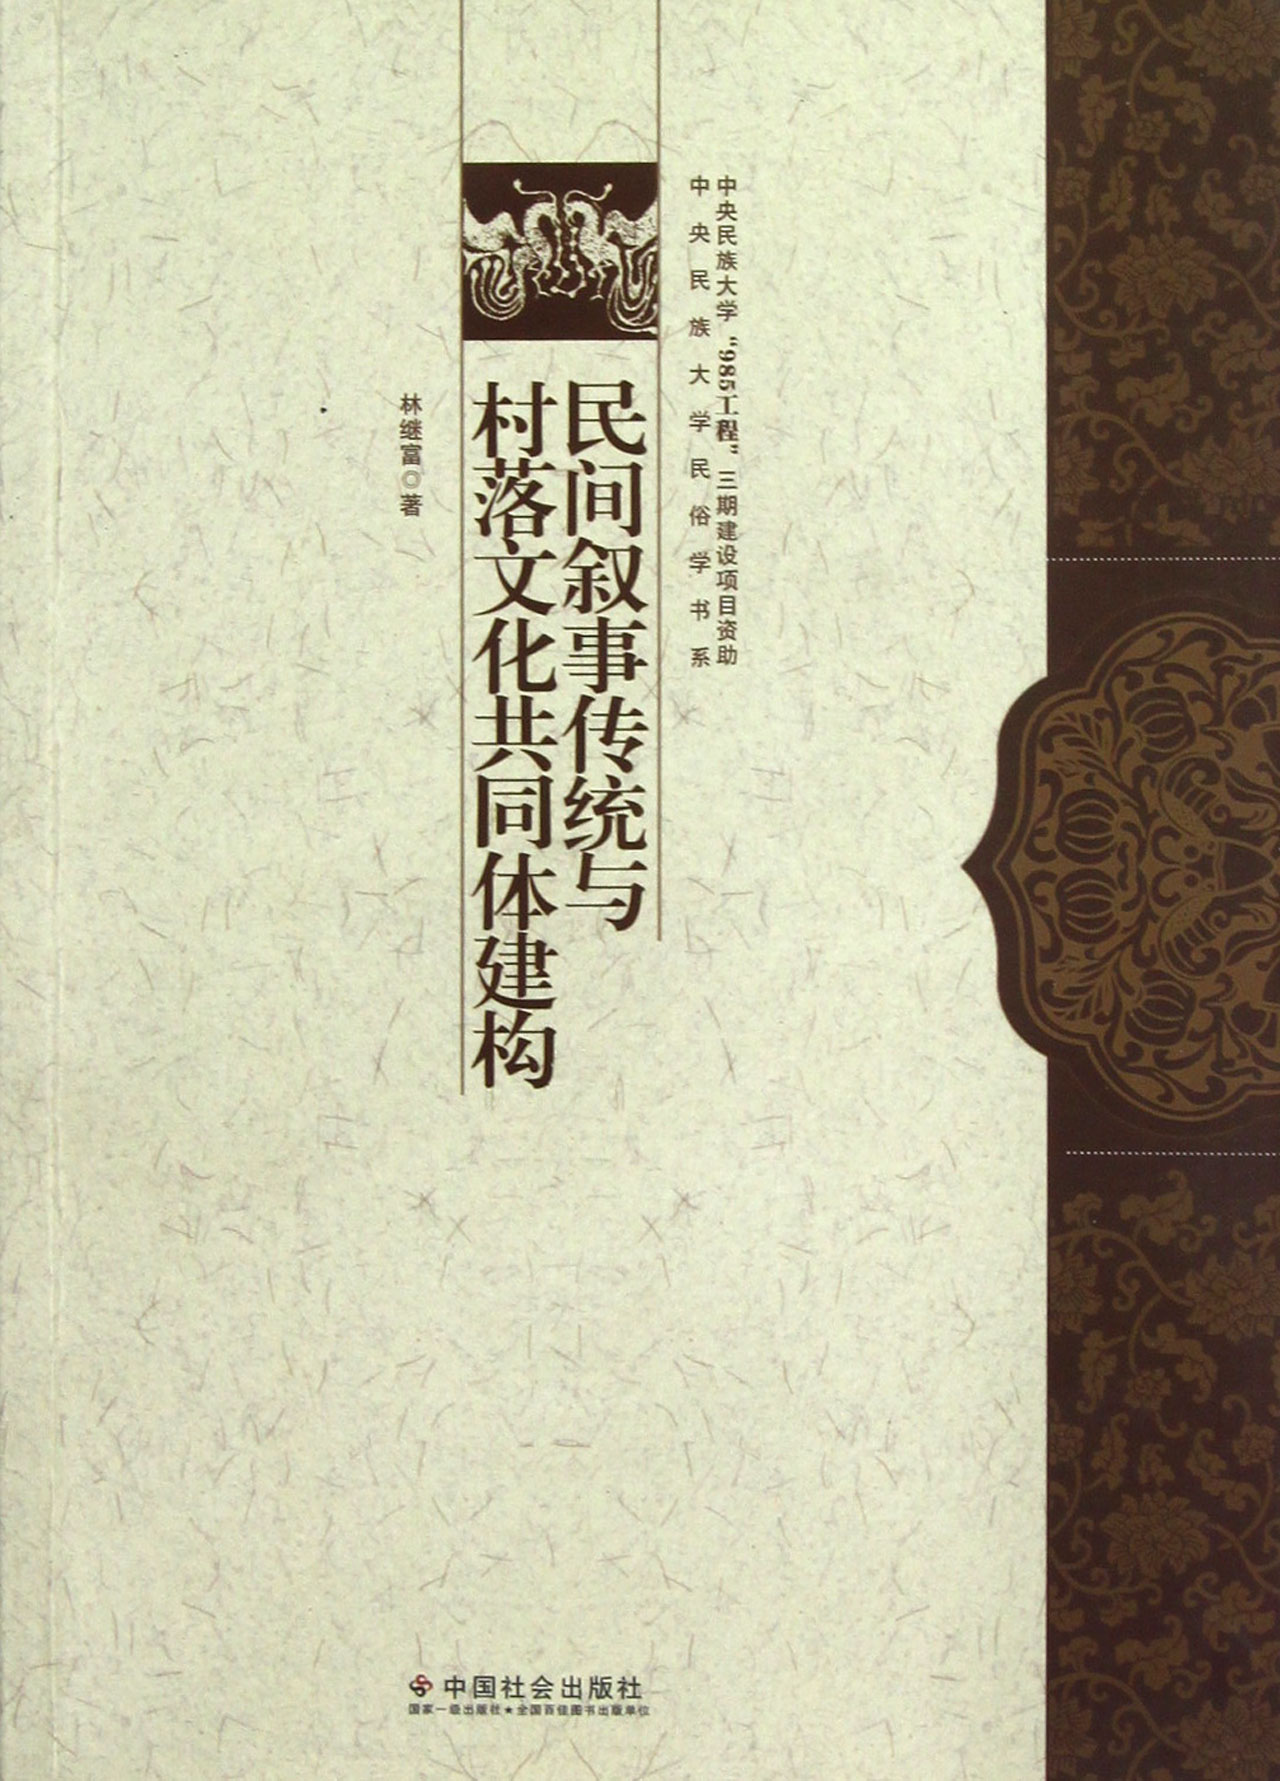 中央民族大学“985工程”三期建设项目资助
中央民族大学民俗学书系
民间叙事传统与
村落文化共同体建构
林继富◎著
中国社会出版社
国家一级出版社★全国百佳图书出版单位